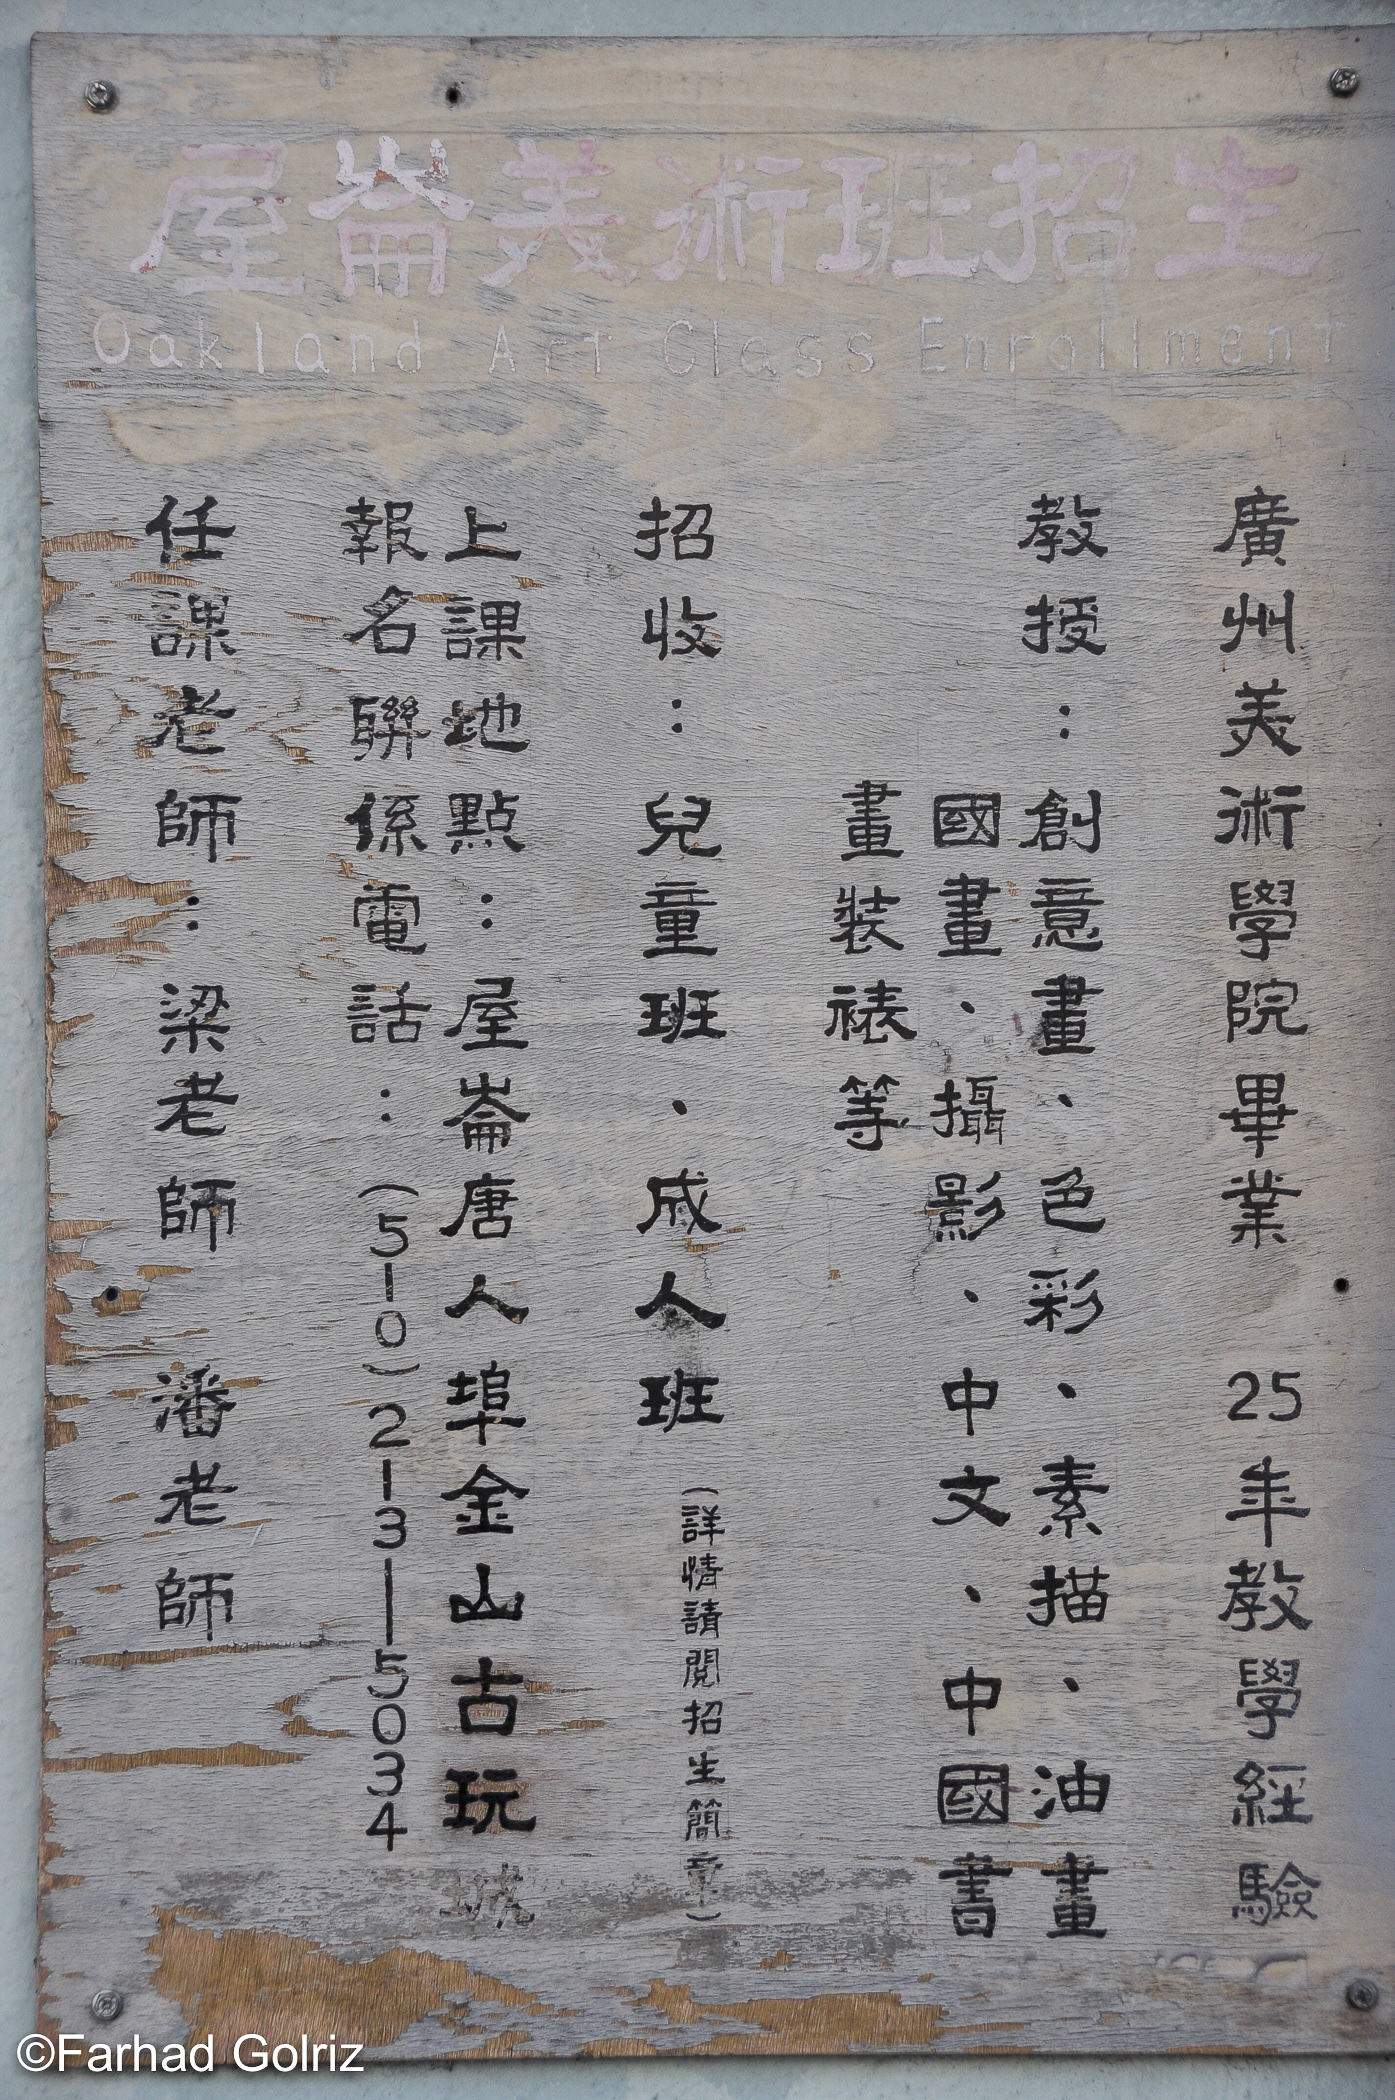 屋崙美術班招生
Oakland Art Class Enrollment
廣州美術學院畢業 25年教學經驗
教授：創意畫、色彩、素描、油畫
國畫、攝影、中文、中國書
畫裝裱等
招收：兒童班、成人班 (詳情請閱招生簡章)
上課地點：屋崙唐人埠金山古玩城
報名聯係電話：(510)213-5034
任課老師：梁老師 潘老師
©Farhad Golriz